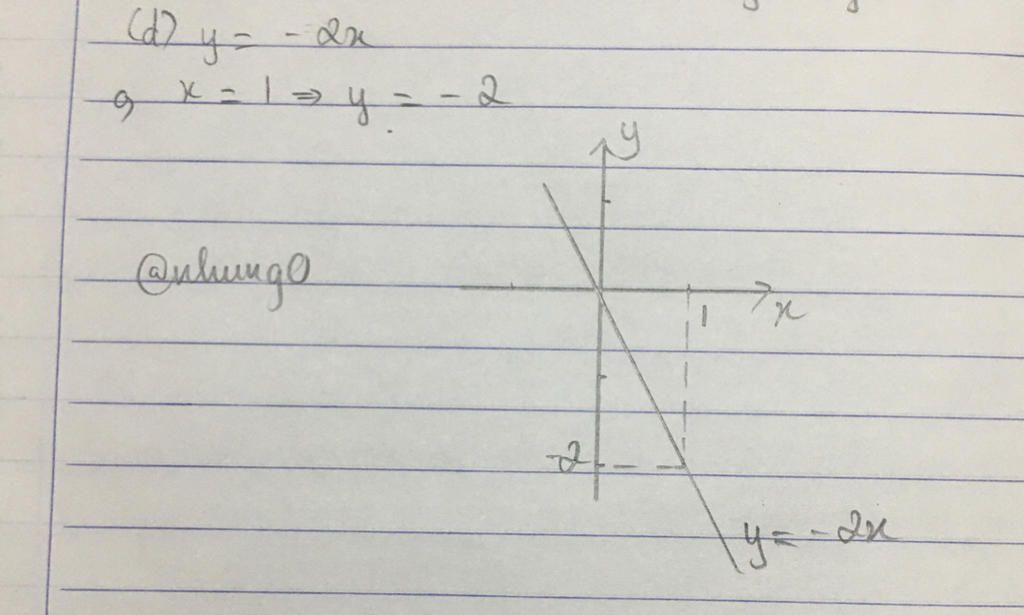 (d) y = -2x
x = 1 ⇒ y = -2
y
@nhung0
1
x
-2
y = -2x